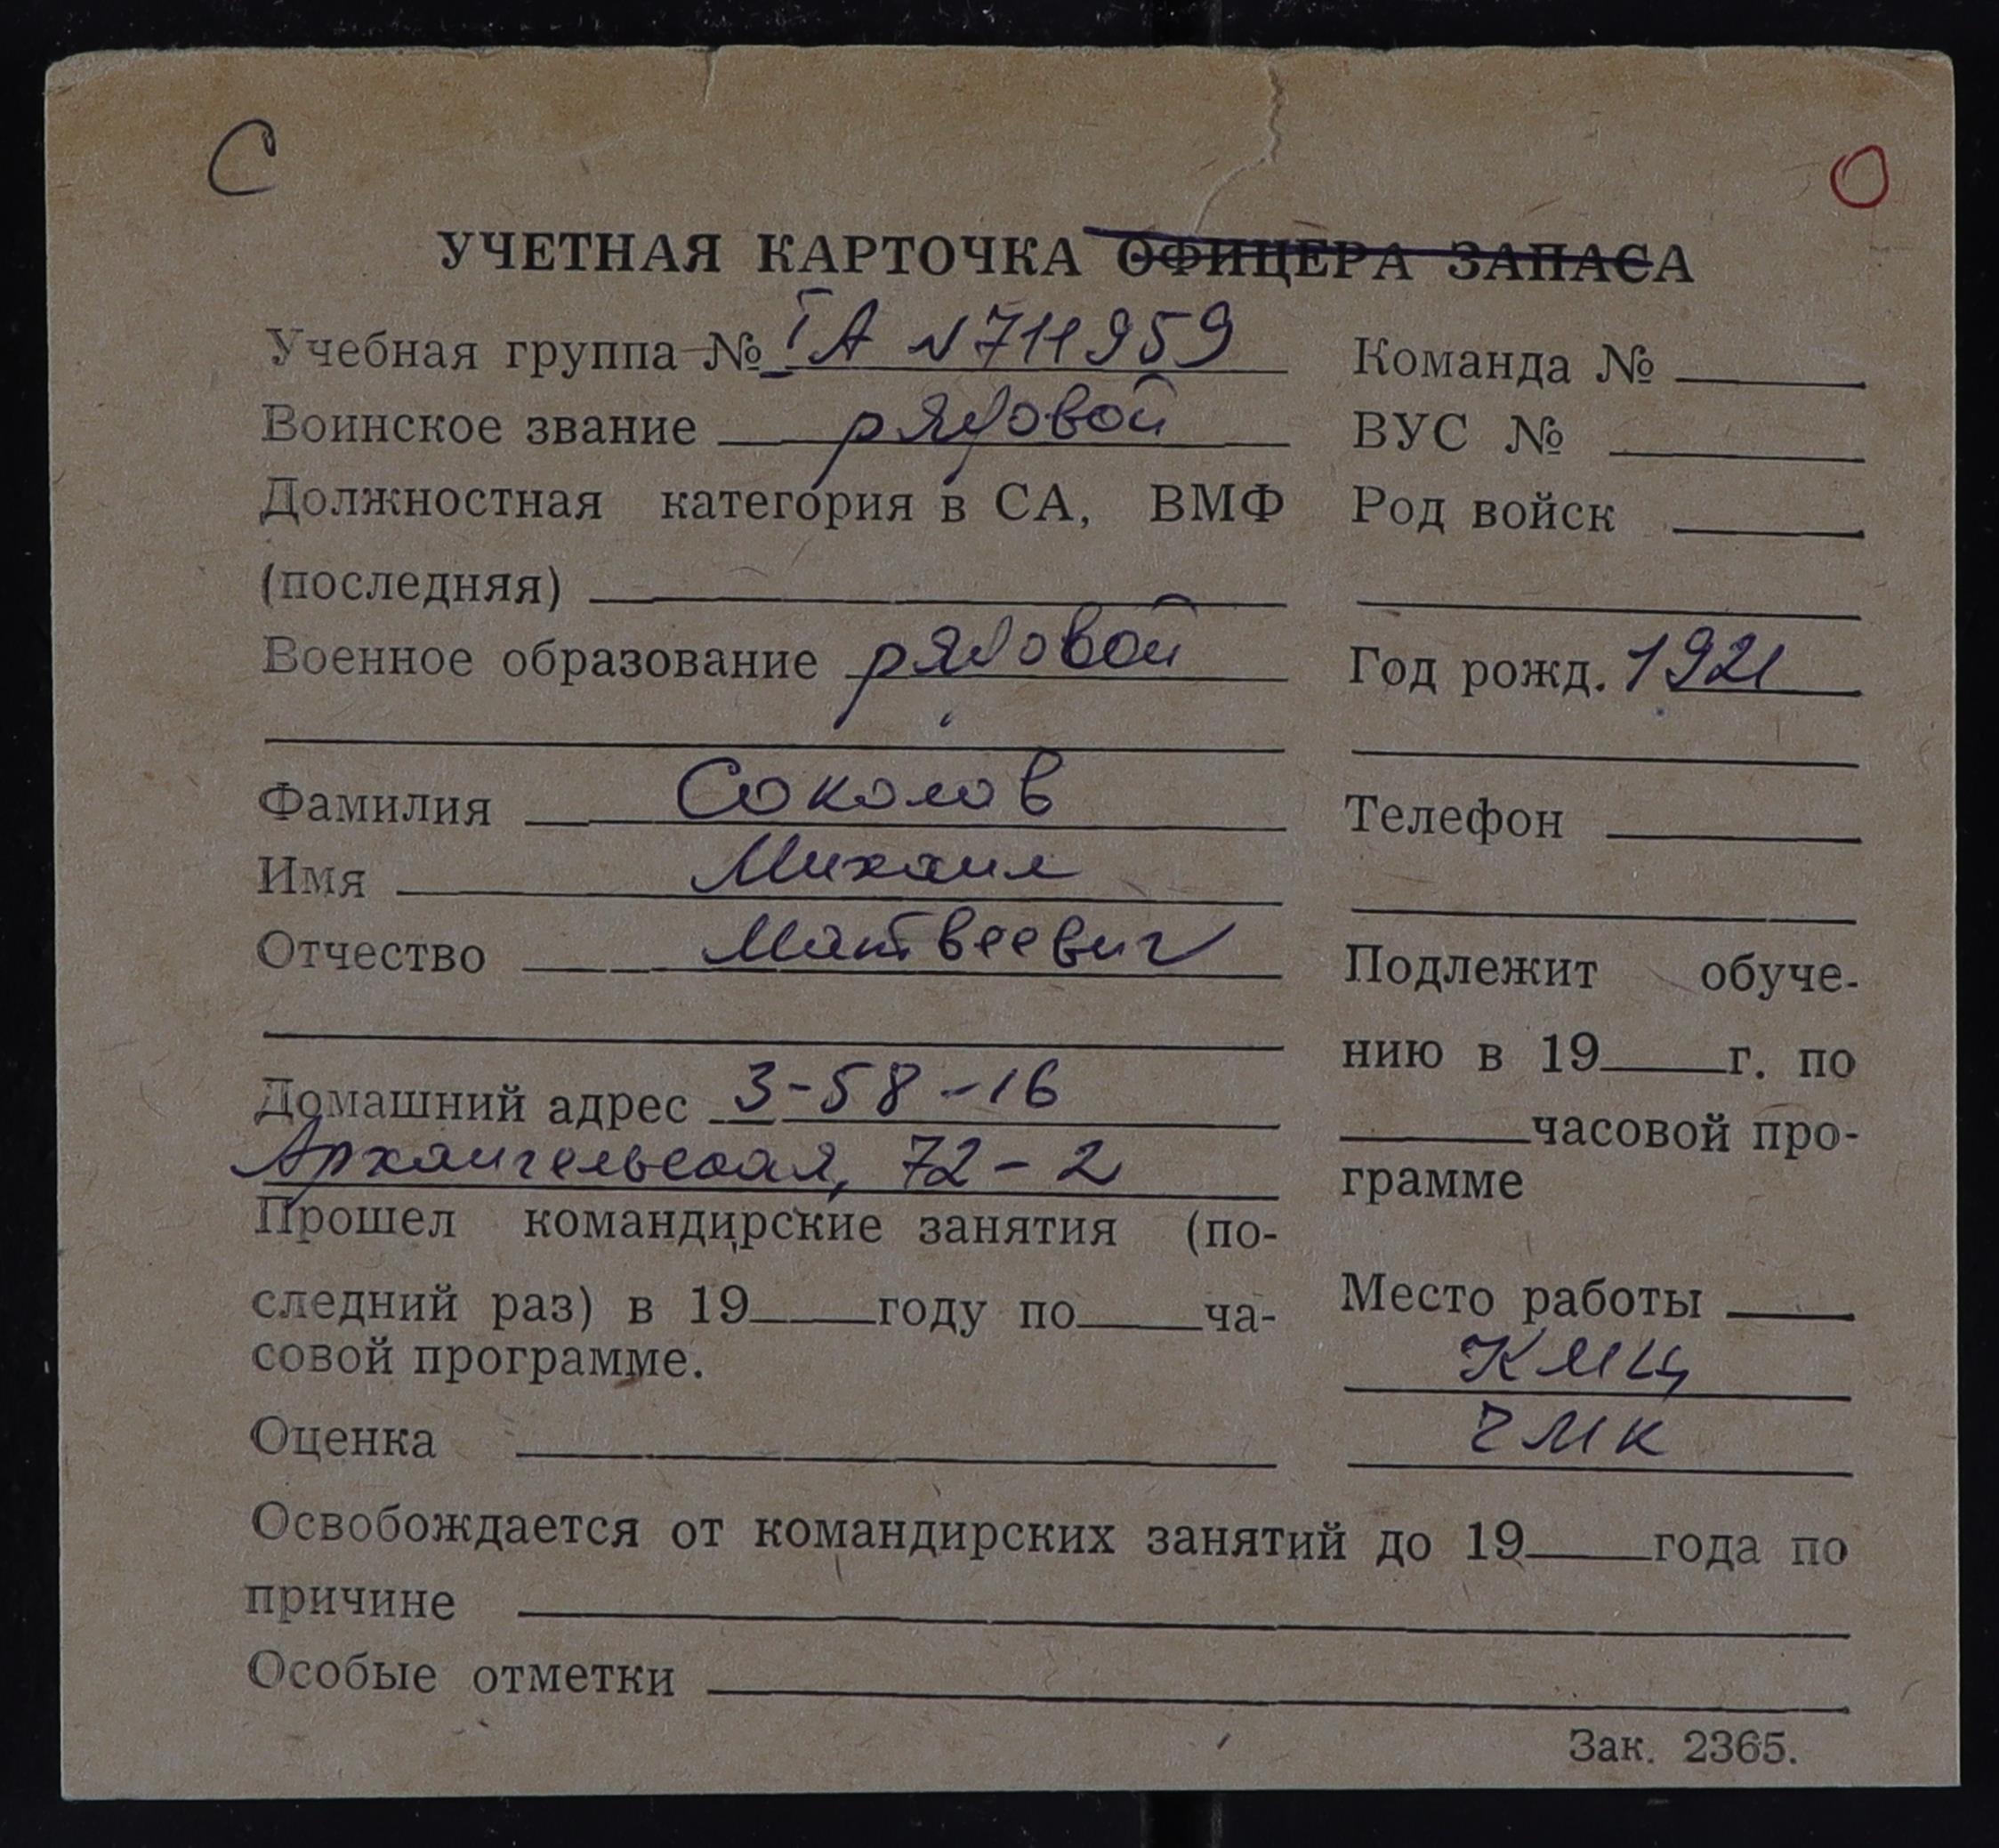 С
О
УЧЕТНАЯ КАРТОЧКА ОФИЦЕРА ЗАПАСА
Учебная группа № IА N 711959
Воинское звание рядовой
Должностная категория в СА, ВМФ
(последняя)
Военное образование рядовой
Фамилия Соколов
Имя Михаил
Отчество Матвеевич
Домашний адрес 3-58-16
Архангельская, 72-2
Прошел командирские занятия (по-
следний раз) в 19 году по ча-
совой программе.
Оценка
Команда №
ВУС №
Род войск
Год рожд. 1921
Телефон
Подлежит обуче-
нию в 19 г. по
часовой про-
грамме
Место работы
КМЦ
ЧМК
Освобождается от командирских занятий до 19 года по
причине
Особые отметки
Зак. 2365.